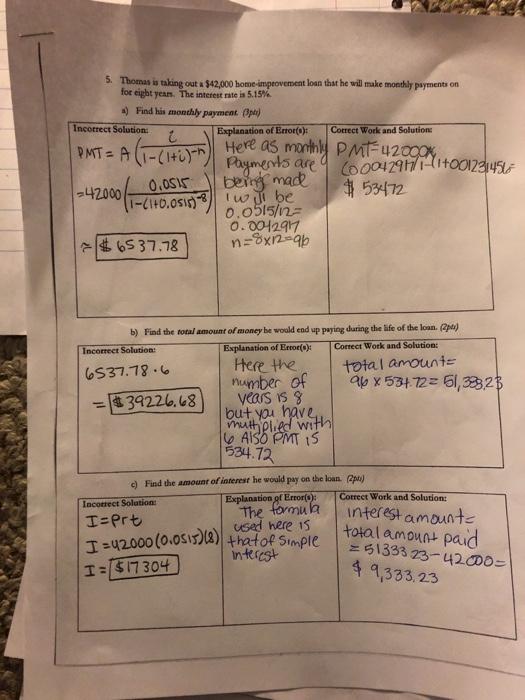 5. Thomas is taking out a $42,000 home-improvement loan that he will make monthly payments on
for eight years. The interest rate is 5.15%.
a) Find his monthly payment. (3pts)
Incorrect Solution:
PMT = A (i / 1-(1+i)^-n)
=42000 (0.0515 / 1-(1+0.0515)^-8)
≈ $6537.78
Explanation of Error(s):
Here as monthly
Payments are
being made
i will be
0.0515/12=
0.0042917
n=8x12=96
Correct Work and Solution:
PMT=42000x
$ 53472
b) Find the total amount of money he would end up paying during the life of the loan. (2pts)
Incorrect Solution:
6537.78·6
= $39226.68
Explanation of Error(s):
Here the
number of
years is 8
but you have
multiplied with
6 Also PMT is
534.72
Correct Work and Solution:
total amount=
96 x 534.72= 51,333,23
c) Find the amount of interest he would pay on the loan. (2pts)
Incorrect Solution:
I=Prt
I=42000(0.0515)(8)
I= $17304
Explanation of Error(s):
The formula
used here is
that of simple
interest
Correct Work and Solution:
interest amount=
total amount paid
= 51333 23-42000=
$ 9,333.23